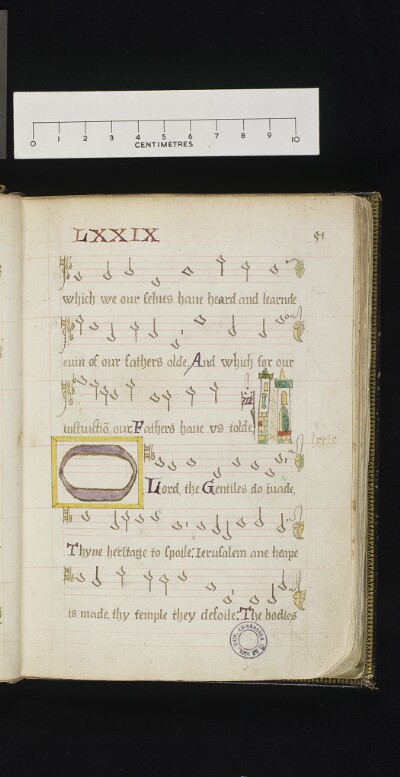 0 1 2 3 4 5 6 7 8 9 10
CENTIMETRES
LXXIX
51
which we our selues haue heard and learnde
euin of our fathers olde, And which for our
instructiō, our Fathers haue vs tolde.
lxxix
O Lord, the Gentiles do inuade,
Thyne heritage to spoile: Ierusalem ane heape
is made, thy temple they defoile. The bodies
UNIV. EDINBURGH